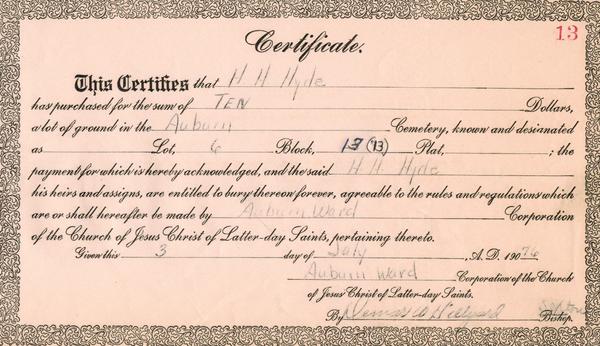 13
Certificate.
This Certifies that H H Hyde
has purchased for the sum of TEN Dollars,
a lot of ground in the Auburn Cemetery, known and designated
as Lot, 6 Block, 13 (13) Plat, ; the
payment for which is hereby acknowledged, and the said H H Hyde
his heirs and assigns, are entitled to bury thereon forever, agreeable to the rules and regulations which
are or shall hereafter be made by Auburn Ward Corporation
of the Church of Jesus Christ of Latter-day Saints, pertaining thereto.
Given this 3 day of July, A. D. 1907
Auburn Ward Corporation of the Church
of Jesus Christ of Latter-day Saints.
By Bishop.